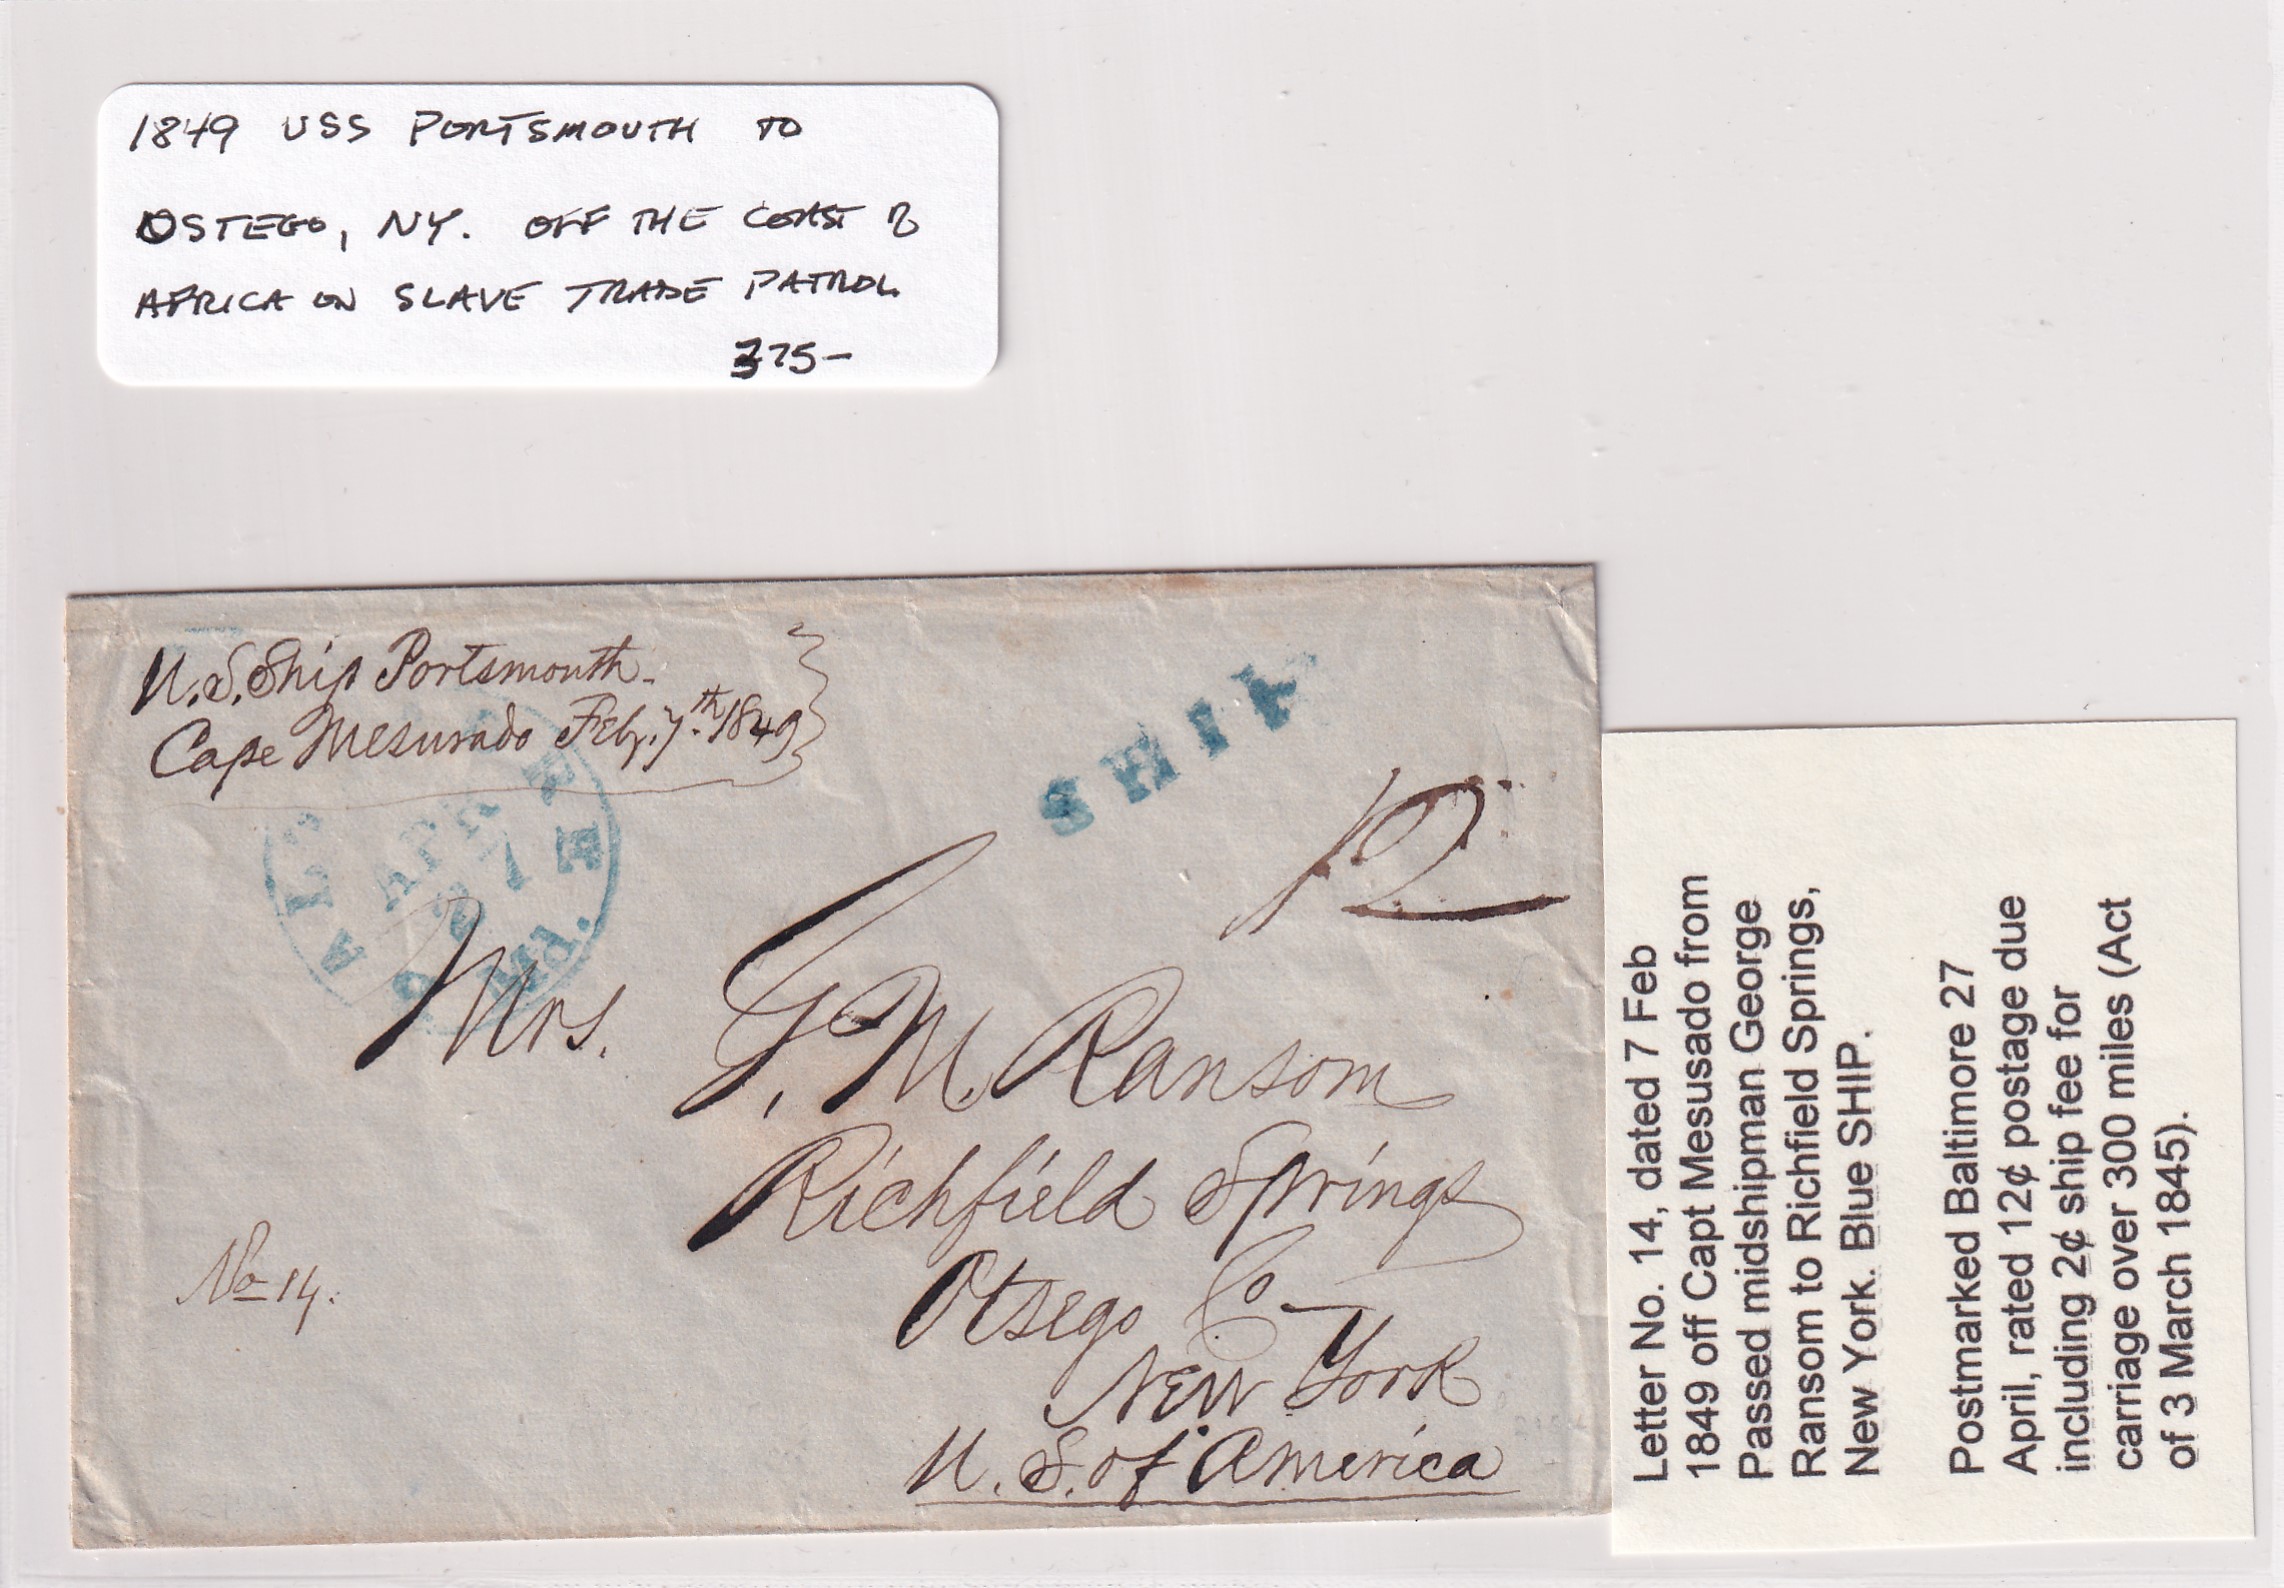 1849 USS PORTSMOUTH TO
OSTEGO, NY. OFF THE COAST OF
AFRICA ON SLAVE TRADE PATROL
375-
U.S. Ship Portsmouth.
Cape Mesurado Feby. 7th. 1849
SHIP
12
BALTIMORE Md.
APR
27
Mrs. G. M. Ransom
Richfield Springs
Otsego Co-
New York
U. S. of America
No 14.
Letter No. 14, dated 7 Feb
1849 off Capt Mesusado from
Passed midshipman George
Ransom to Richfield Springs,
New York. Blue SHIP.
Postmarked Baltimore 27
April, rated 12¢ postage due
including 2¢ ship fee for
carriage over 300 miles (Act
of 3 March 1845).